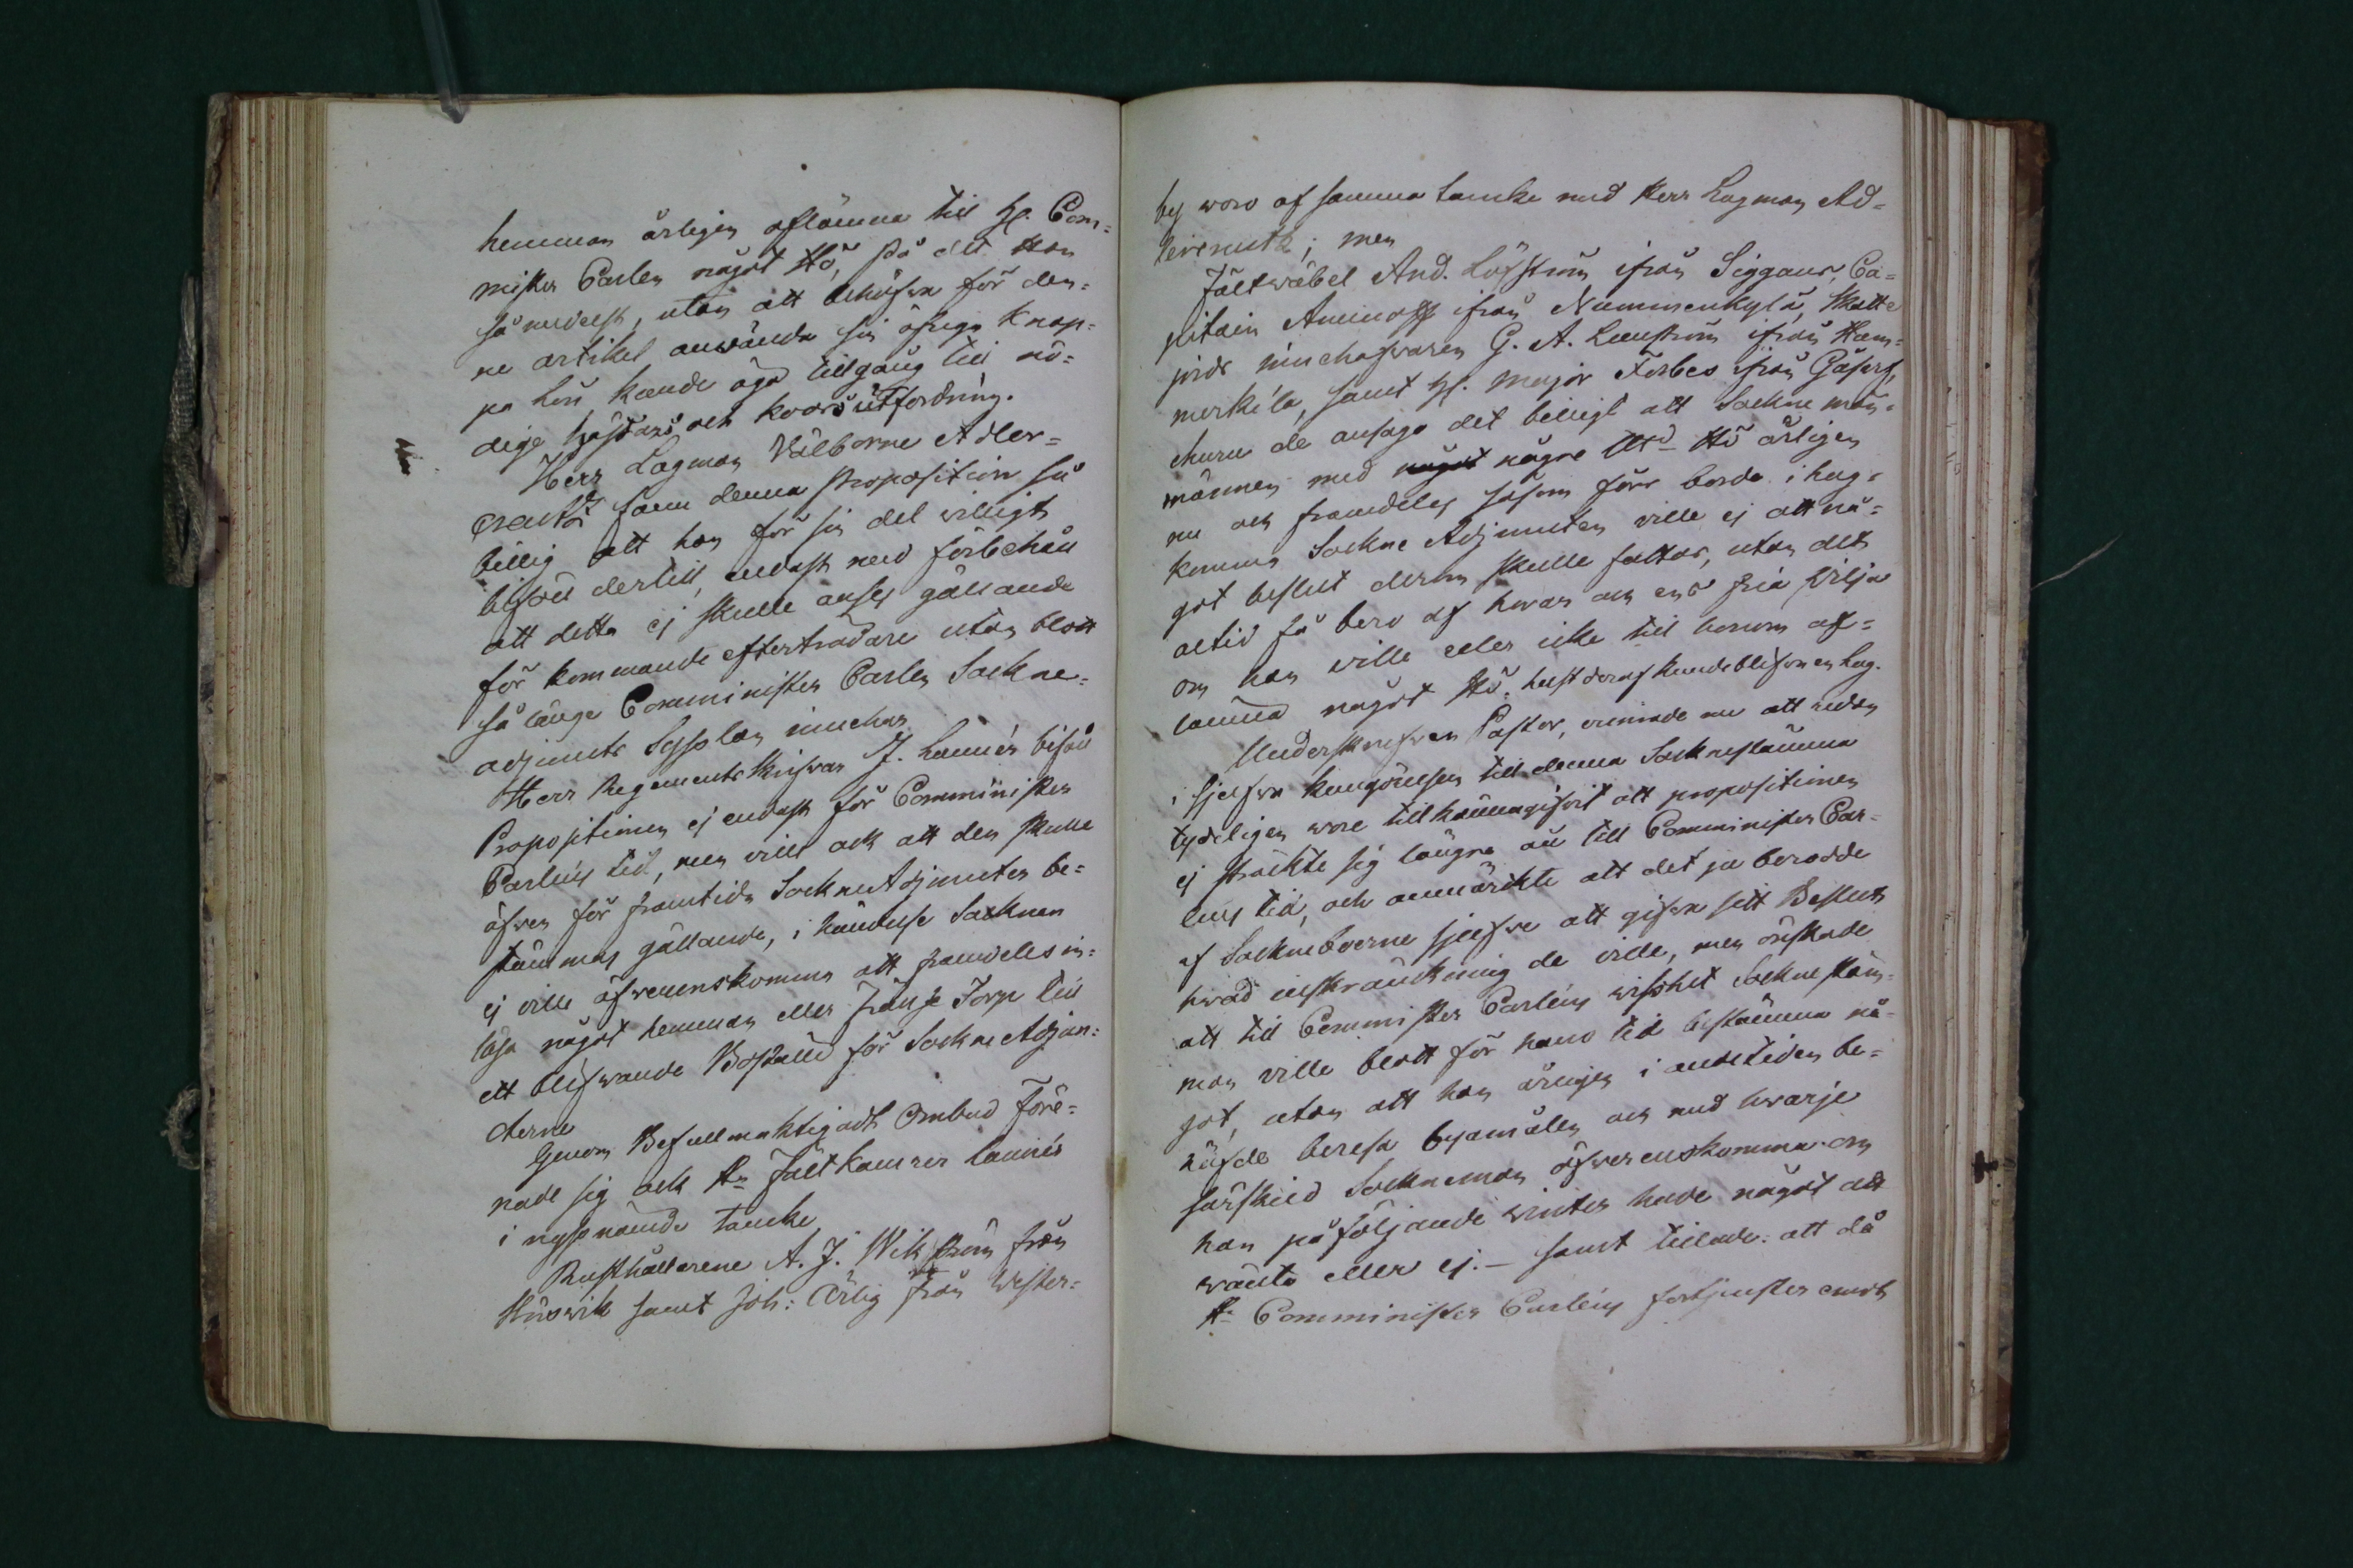 hemman årligen aflämna till H. Com=
minister Carlen något Hö, på det Han
så medelst, utan att behöfva för den=
ne artikel använda sin öfriga knap=
pa lön kunde äga tillgång till nö=
dige hästars och koors utfordring.
Herr Lagman Välborne Adler=
creutz fann denna proposition så
billig att han för sin del villigt
biföll dertill, endast med förbehåll
att detta ej skulle anses gällande
för kommande efterträdare utan blott
så länge Comminister Carlen Sockne=
adjuncts Sysslan innehar.
Herr Regementskrifvar J. Lannér biföll
Propositionen ej endast för Comminister
Carlens tid, men ville ock att den skulle
äfven för framtida SockneAdjuncter be=
stämmas gällande, i händelse Socknen
ej ville öfverenskomma att framdeles in=
lösa något hemman eller Frälse Torp till
ett blifvande Boställe för Sockne Adjun=
cterne
Genom Befullmäktigadt Ombud före=
nade sig ock Hr Fältkamrer Lannér
i nyssnämde tancke
Rusthållarene A. J. Wikström från
Hirsvik samt Joh: Ärlig från Wester=
by woro af samma tancke med Herr Lagman Ad=
lercreutz; men
Fältwäbel And. Löfström ifrån Siggans, Ca=
pitain Aminoff ifrån Nummenkylä, Skatte
jords innehafvaren G. A. Lenström ifrån Ham=
merkila, samt H. Major Forbes ifrån Gåsarf,
ehuru de ansågo det billigt att Sockne män=
männen med något någre Lld Hö årligen
nu och framdeles såsom förr borde ihog=
komma Sockne Adjuncten ville ej att nå=
got beslut derom skulle fattas, utan det
altid få bero af hvar och ens fria vilja
om han ville eller icke till honom af=
lämna något Hö, helst deraf kunde blifva en lag.
Underskrefven Pastor, erinrade nu att redan
i sjelfva kungörelsen till denna Socknestämma
tydeligen wore tillkännagifvit att propositionen
ej sträckte sig längre än till Comminister Car=
lens tid, och anmärkte att det ju berodde
af Sockneboerne sjelfve att gifva sitt Beslut
hvad inskränckning de ville, men önskade
att till Comminister Carlens visshet Socknestäm=
man ville blott för hans tid bestämma nå=
got, utan att han årligen i andetiden be=
höfde beresa byamålen och med hwarje
särskild Sockneman öfverenskomma om
han påföljande winter hade något att
wänta eller ej. - samt tillade: att då
Hr Comminister Carlens förtjenster emot